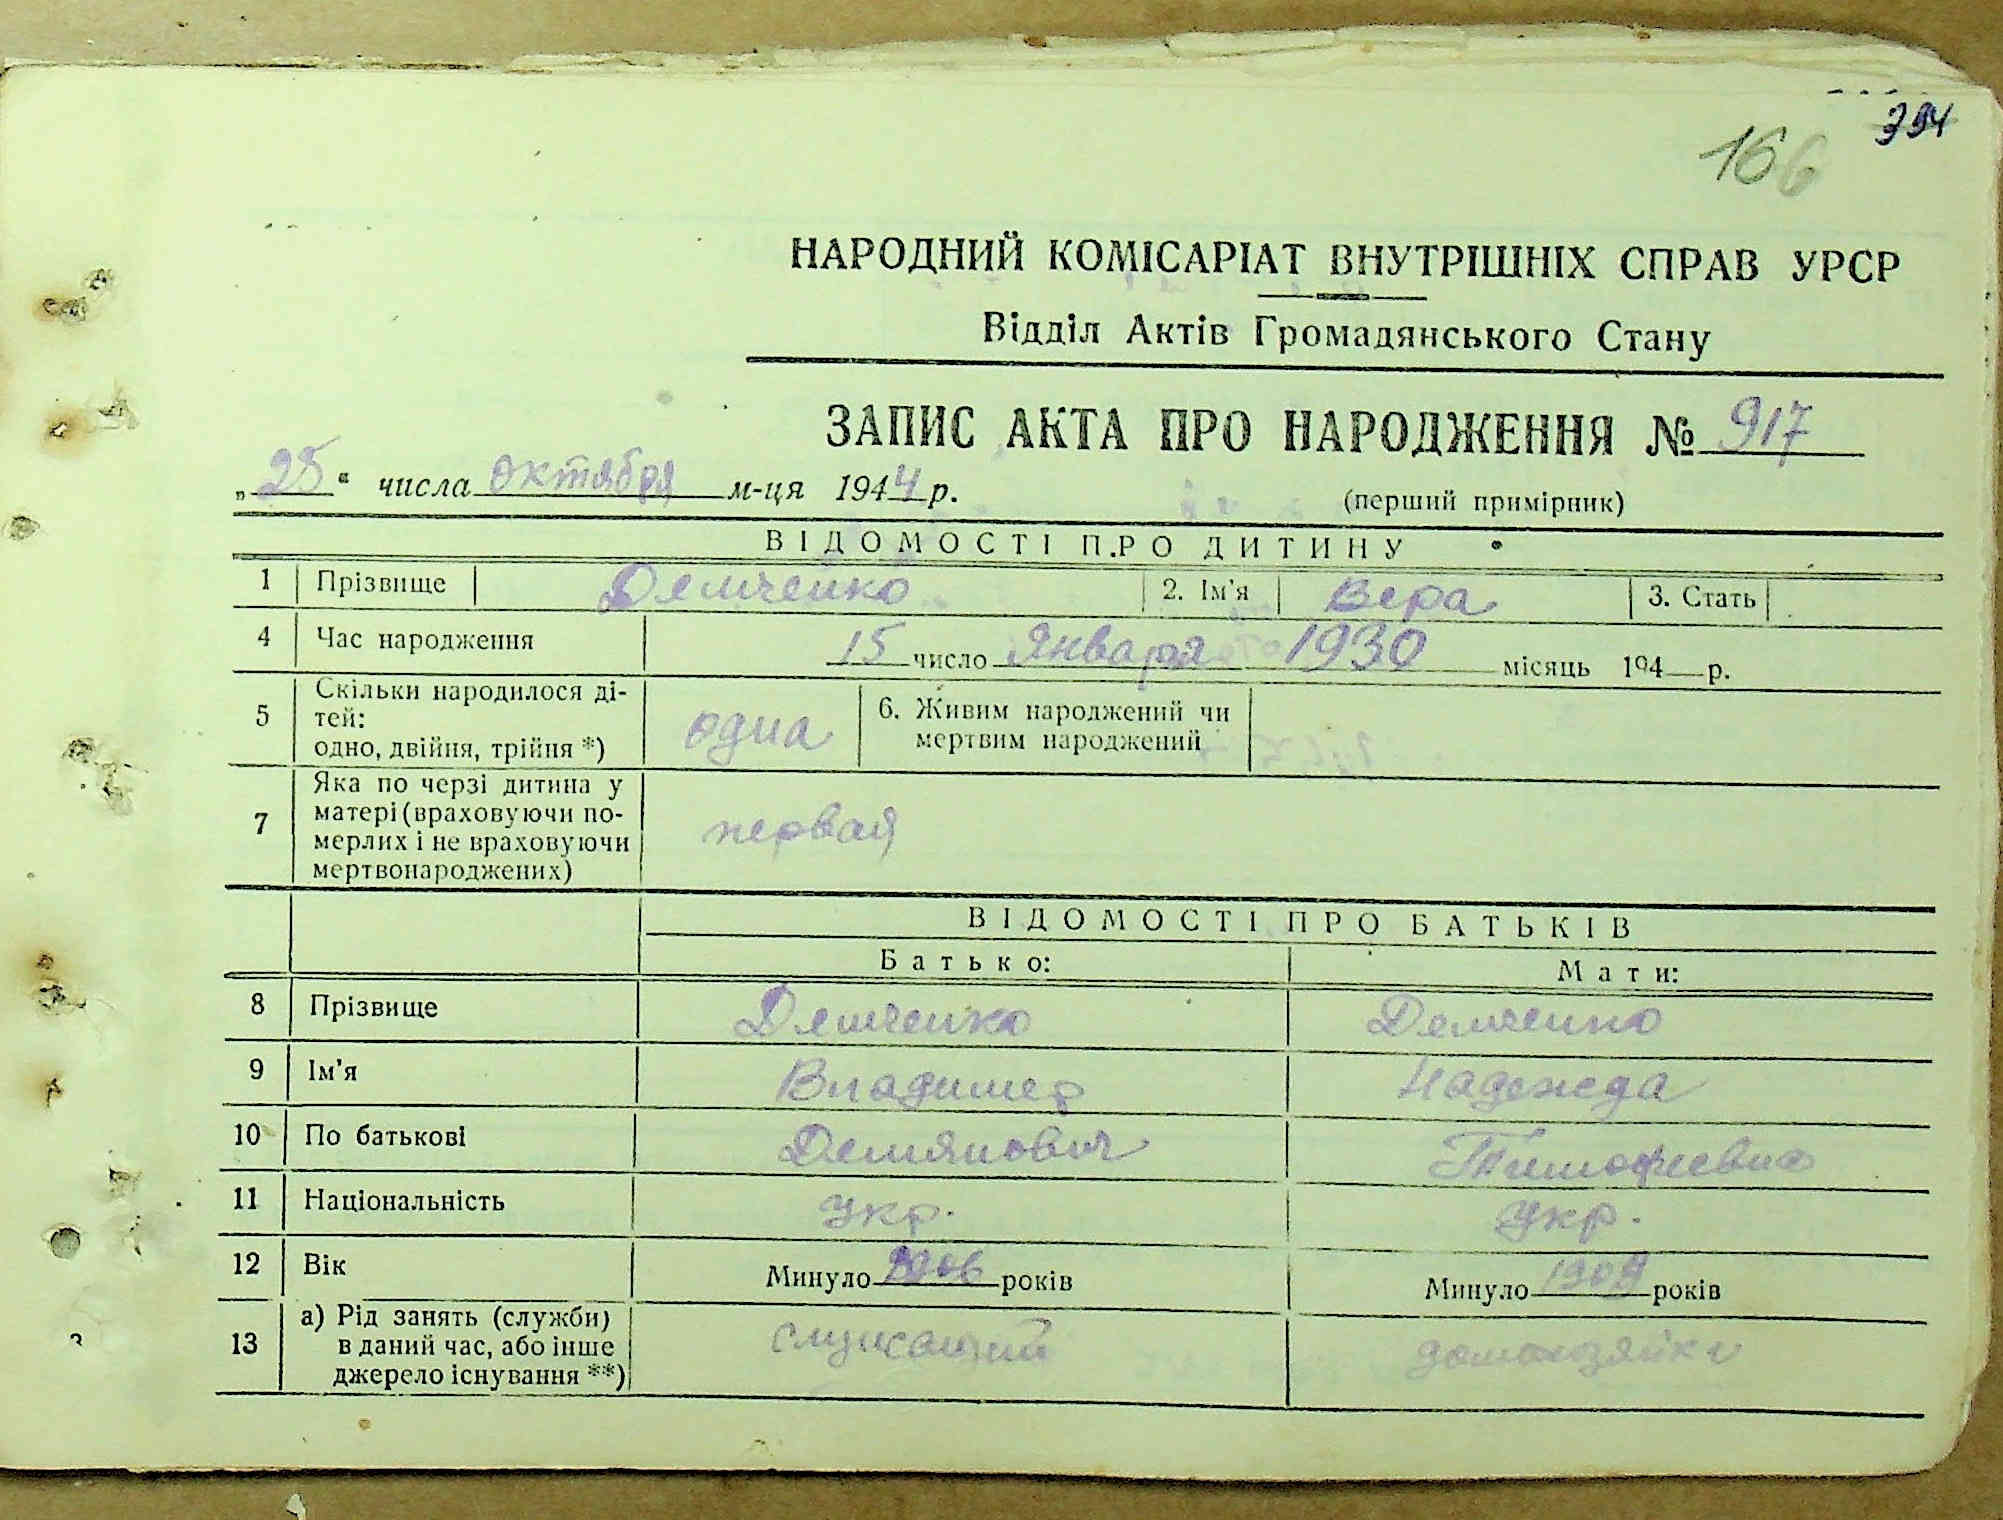 394
166
НАРОДНИЙ КОМІСАРІАТ ВНУТРІШНІХ СПРАВ УРСР
Відділ Актів Громадянського Стану
ЗАПИС АКТА ПРО НАРОДЖЕННЯ № 917
„25“ числа октября м-ця 1944 р.
(перший примірник)
ВІДОМОСТІ ПРО ДИТИНУ
1 Прізвище Демченко 2. Ім'я Вера 3. Стать
4 Час народження 15 число Января 1930 місяць 194 р.
5 Скільки народилося ді-
тей:
одно, двійня, трійня *) одна 6. Живим народжений чи
мертвим народжений
7 Яка по черзі дитина у
матері (враховуючи по-
мерлих і не враховуючи
мертвонароджених) первая
ВІДОМОСТІ ПРО БАТЬКІВ
Батько: Мати:
8 Прізвище Демченко Демченко
9 Ім'я Владимер Надежда
10 По батькові Демянович Тимофеевна
11 Національність Укр. Укр.
12 Вік Минуло 1906 років Минуло 1908 років
13 а) Рід занять (служби)
в даний час, або інше
джерело існування **) служащий домохозяйка